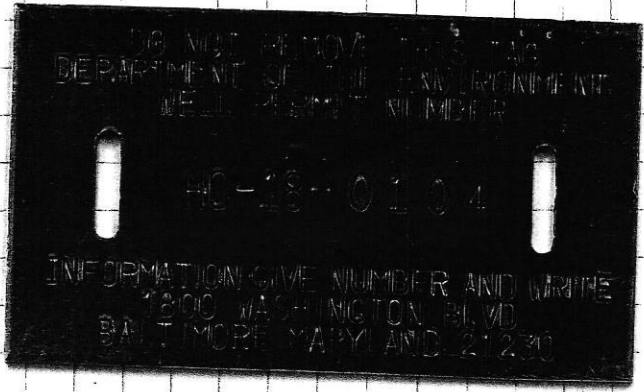 DO NOT REMOVE THIS TAG
DEPARTMENT OF THE ENVIRONMENT
WELL PERMIT NUMBER
HO-18-0104
INFORMATION GIVE NUMBER AND WRITE
1800 WASHINGTON BLVD
BALTIMORE MARYLAND 21230